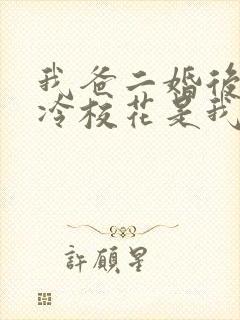 我爸二婚後
冷校花是我
許願星